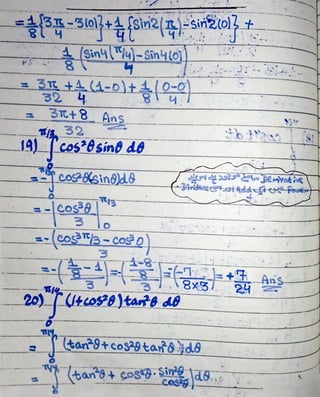 = 1/8 {3π/4 - 3(0)} + 1/4 {sin2(π/4) - sin2(0)} +
1/8 (sin4(π/4) - sin4(0) / 4)
= 3π/32 + 1/4 (1-0) + 1/8 (0-0 / 4)
= 3π+8 / 32 Ans
19) ∫₀^π/3 cos²θ sinθ dθ
= -∫ cos²θ(sinθ)dθ
= -|cos³θ / 3|₀^π/3
= -(cos³π/3 - cos³0 / 3)
= -(1/8 - 1 / 3) = (1-8 / 8 / 3) = (-7 / 8×3) = +7/24 Ans
Derivative
20) ∫₀^π/4 (1+cos²θ) tan²θ dθ
= ∫₀^π/4 (tan²θ + cos²θ tan²θ) dθ
= ∫₀^π/4 (tan²θ + cos²θ · sin²θ/cos²θ) dθ